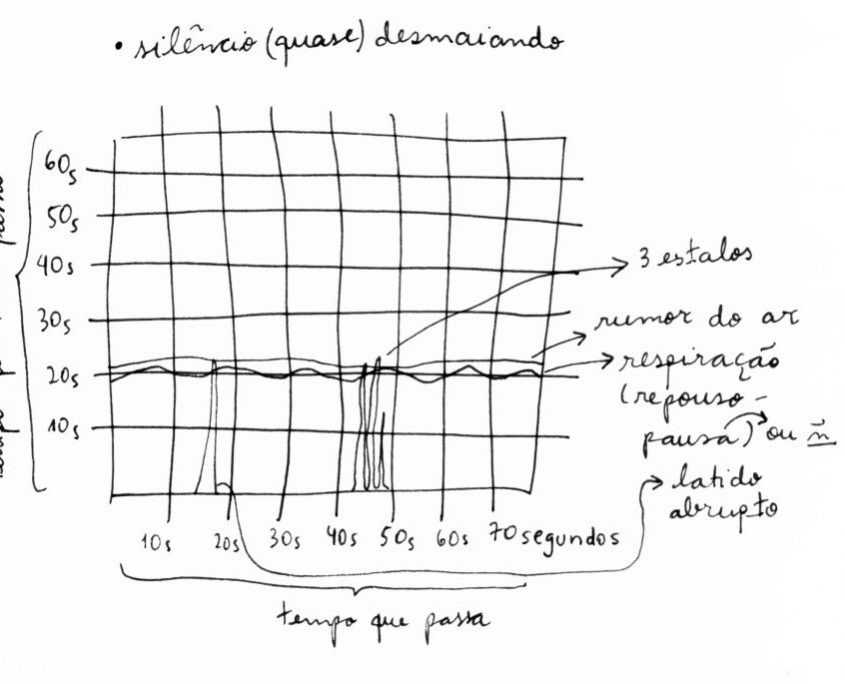 • silêncio (quase) desmaiando
60s
50s
40s
30s
20s
10s
3 estalos
rumor do ar
respiração
(repouso -
pausa) ou ñ
latido
abrupto
10s 20s 30s 40s 50s 60s 70 segundos
tempo que passa